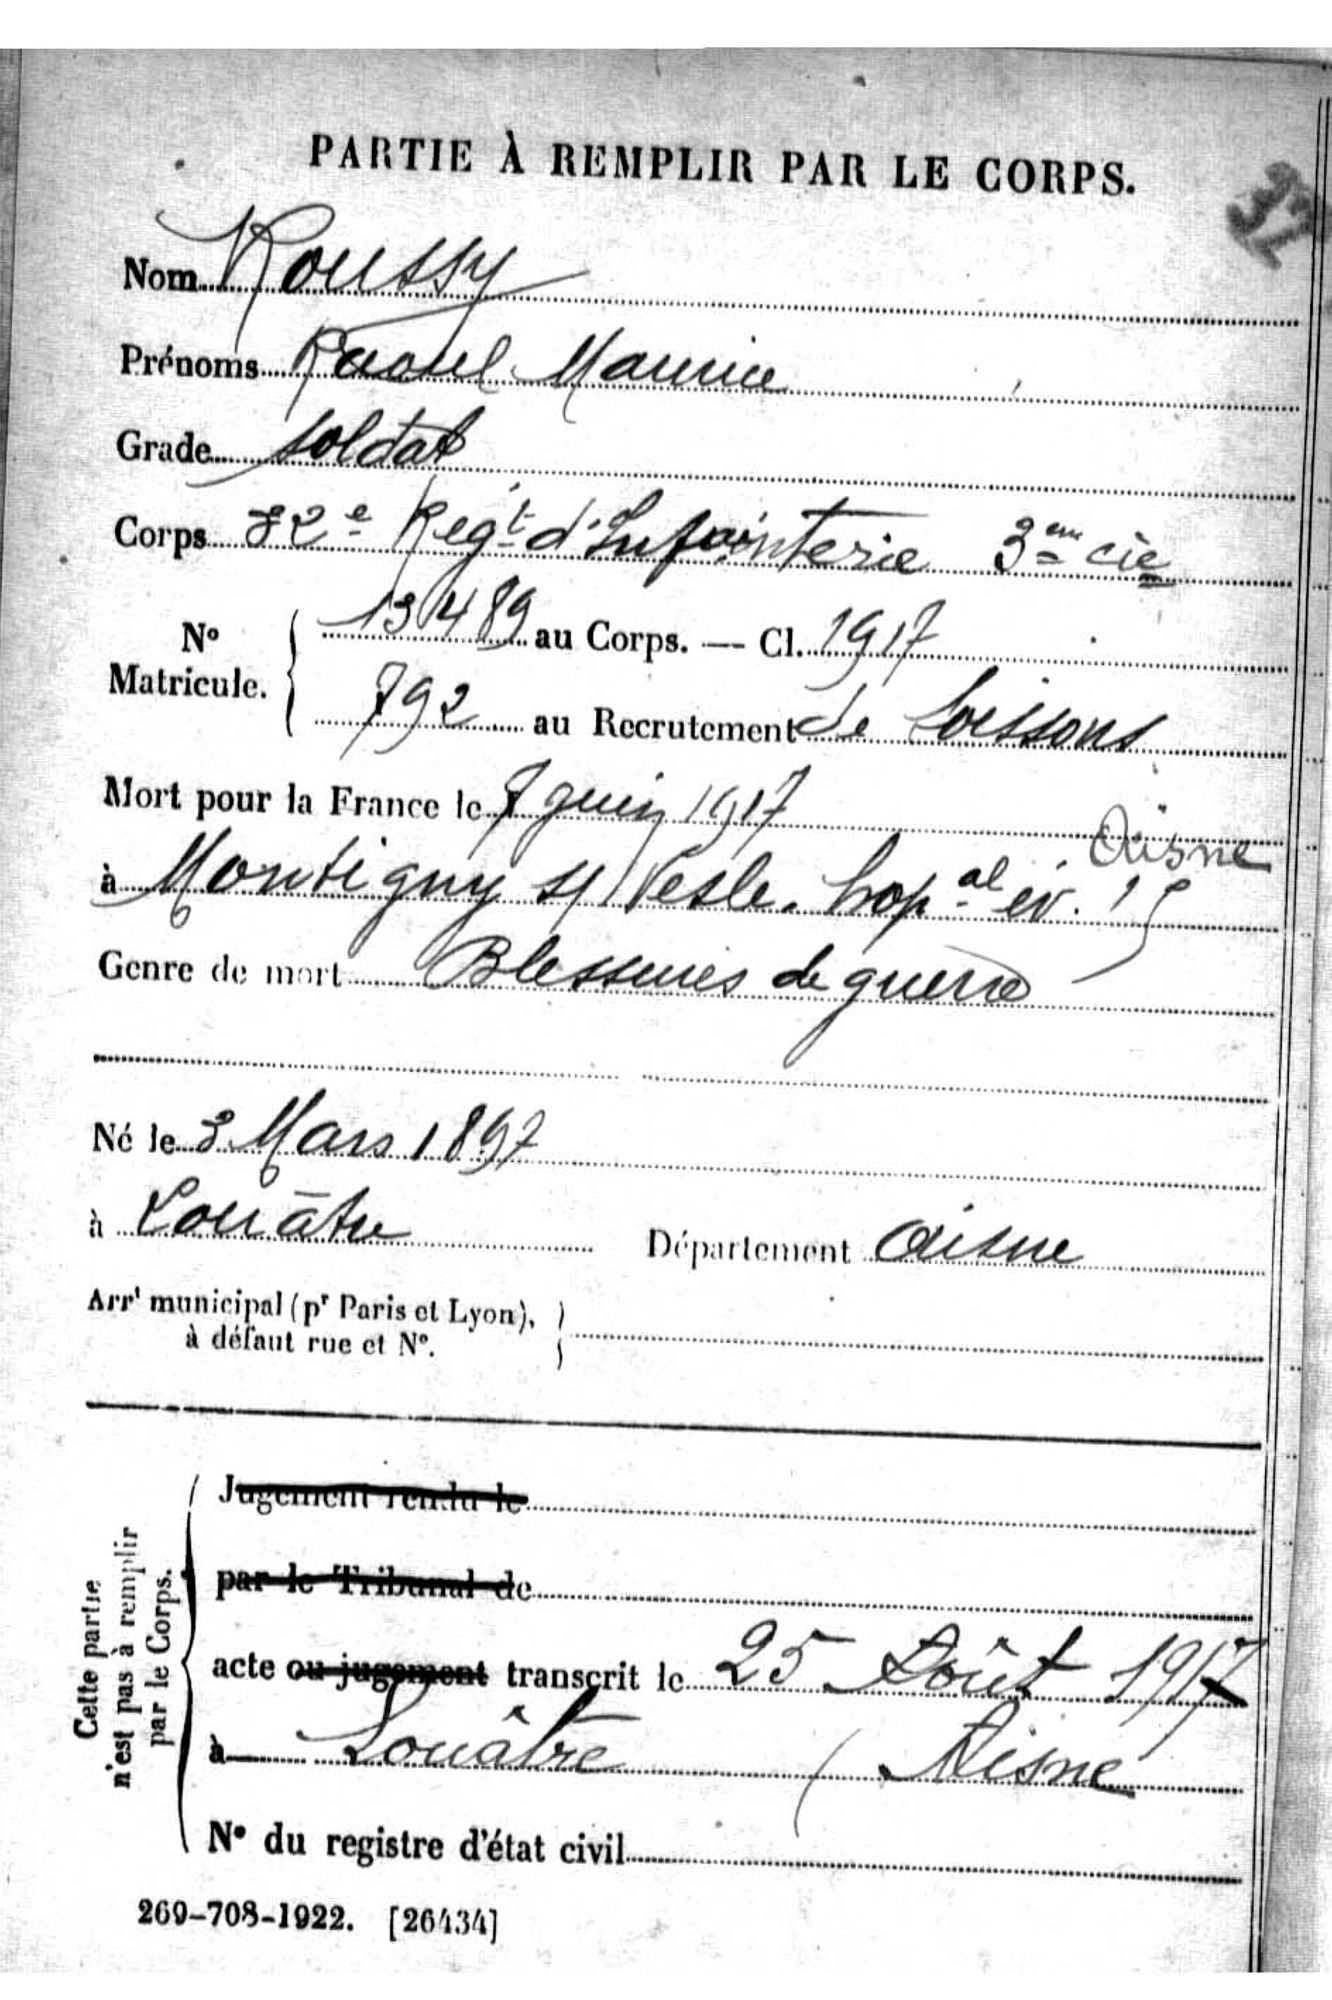 PARTIE À REMPLIR PAR LE CORPS.
Nom Roussy
Prénoms Raoul Maurice
Grade soldat
Corps 82e Régt d'Infanterie 3eme cie
No Matricule. 13489 au Corps. — Cl. 1917
792 au Recrutement de Soissons
Mort pour la France le 7 juin 1917
Aisne
à Montigny s/ Vesle. hopal ev.
Genre de mort Blessures de guerre
Né le 3 Mars 1897
à Louâtre Département Aisne
Arrt municipal (pr Paris et Lyon),
à défaut rue et No.
Cette partie
n'est pas à remplir
par le Corps.
Jugement rendu le
par le Tribunal de
acte ou jugement transcrit le 25 Août 1917
à Louâtre (Aisne
No du registre d'état civil
269-708-1922. [26434]